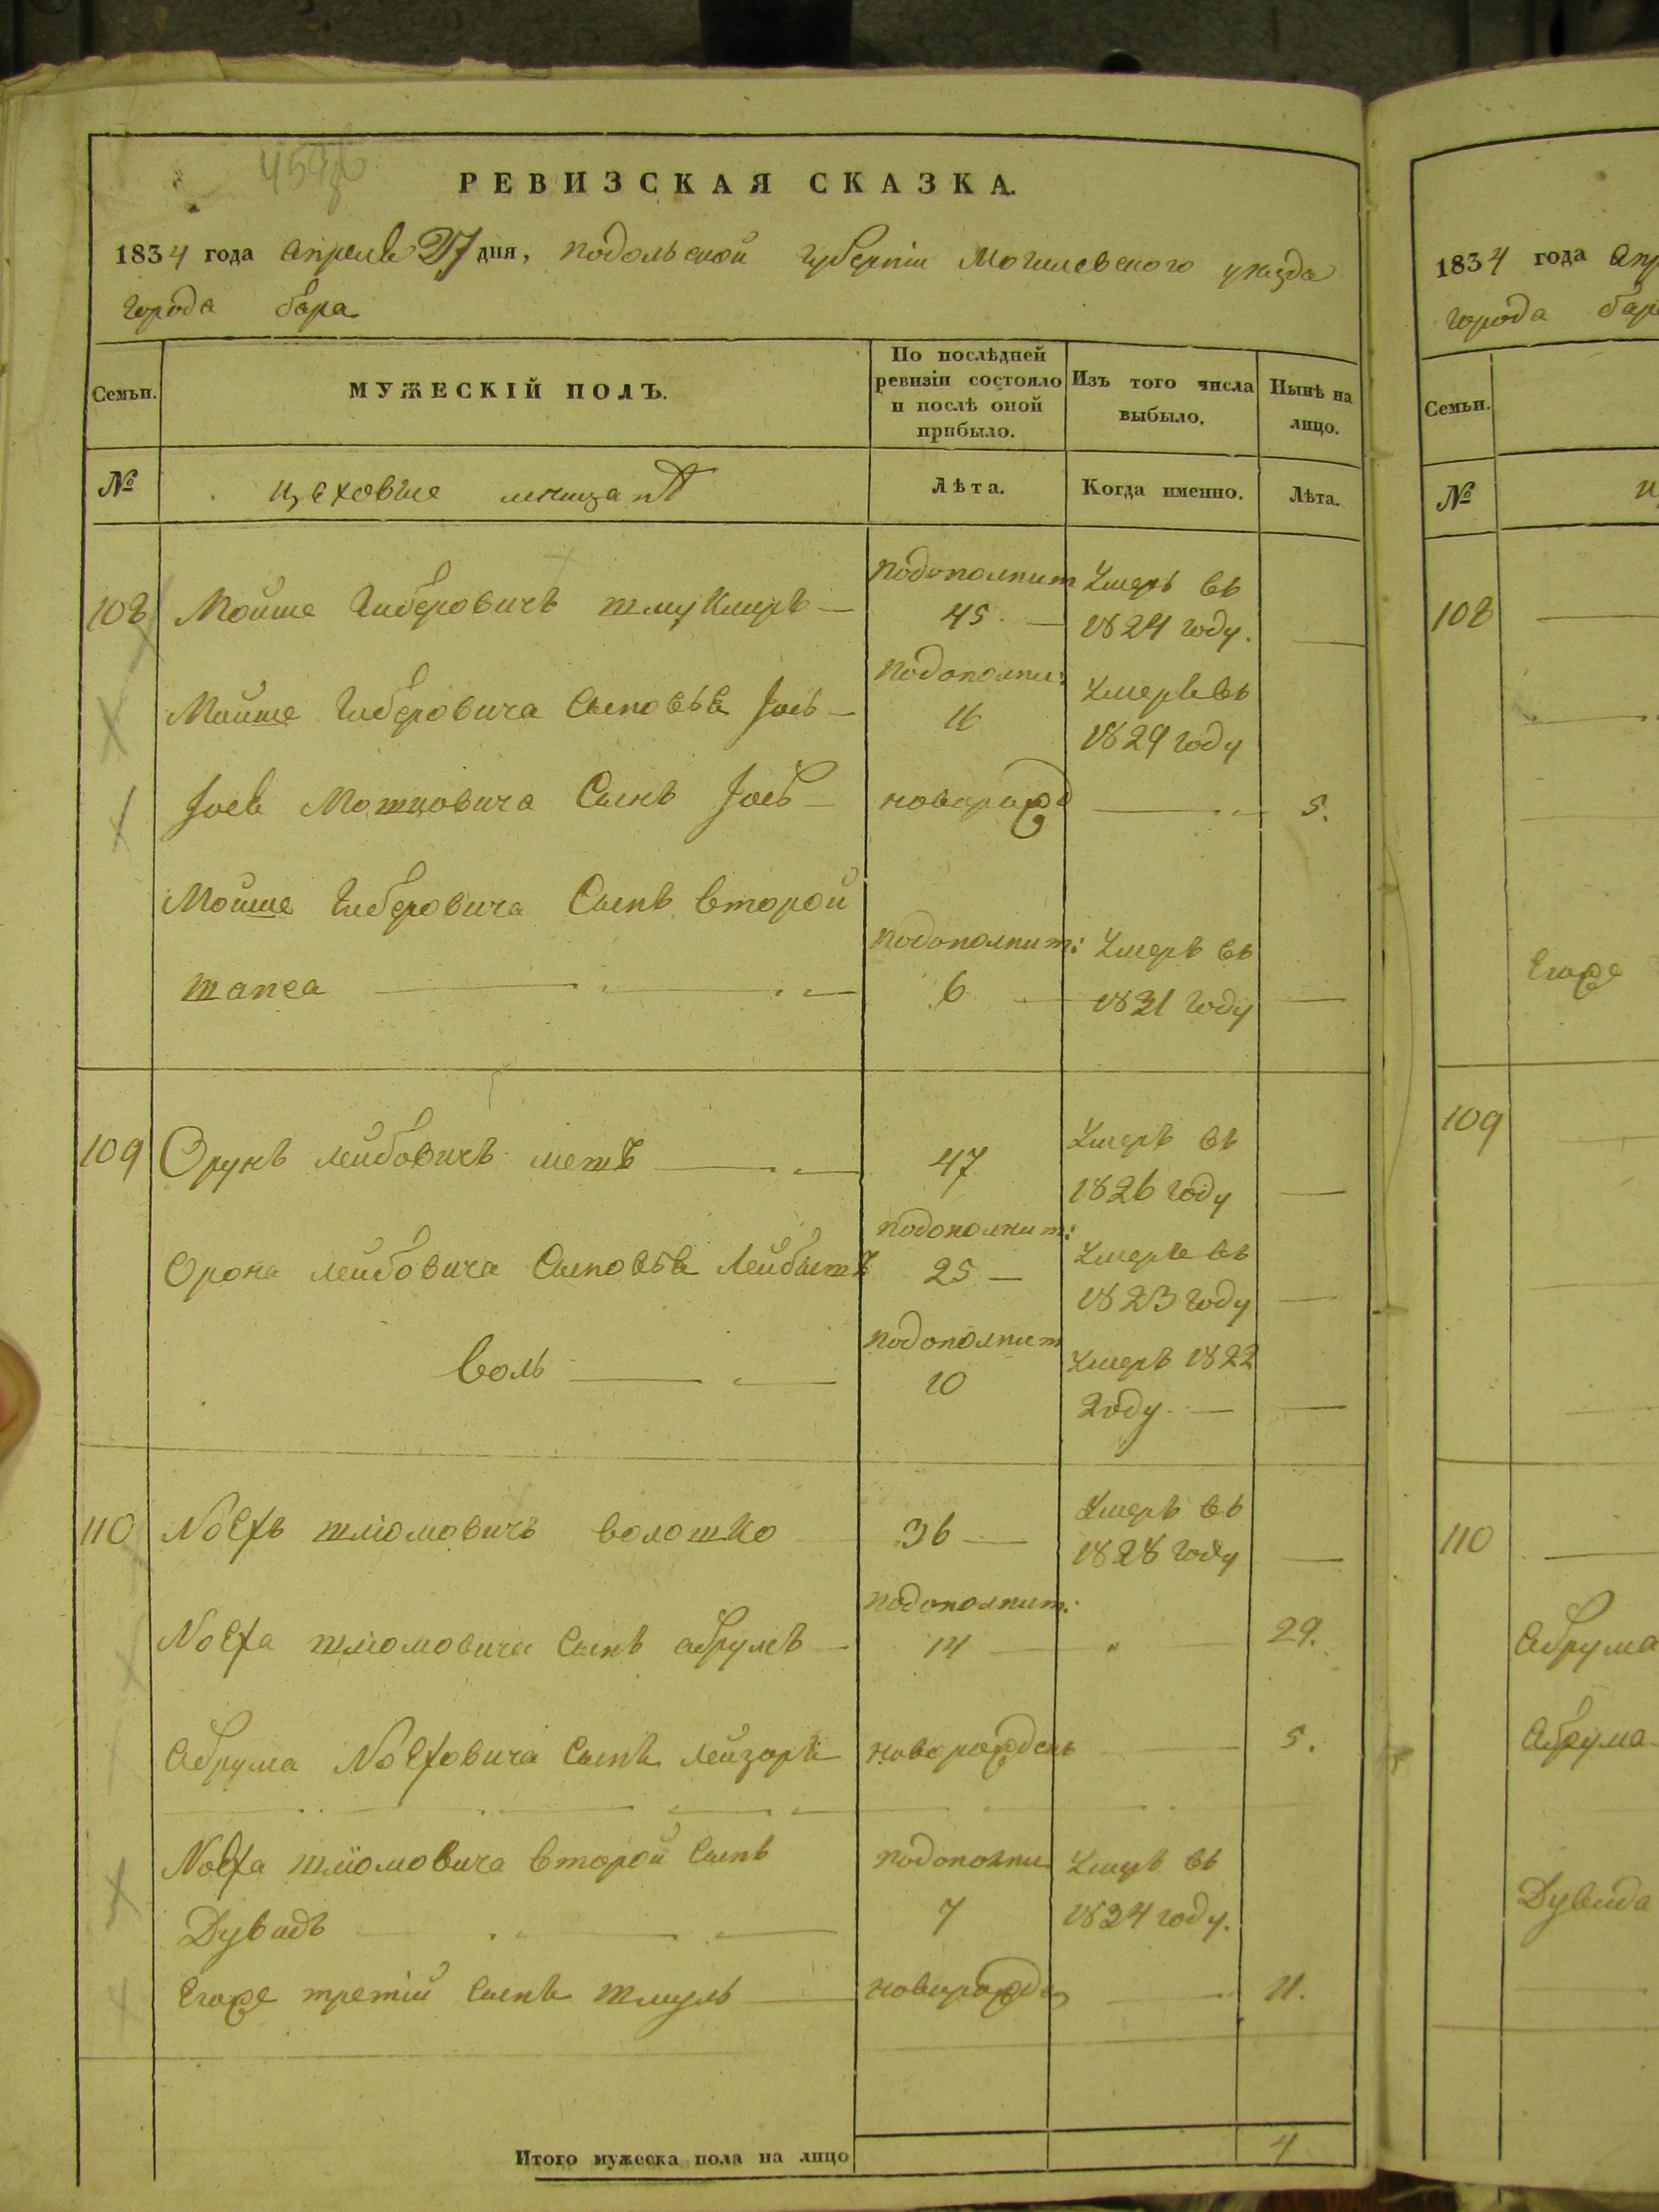 РЕВИЗСКАЯ СКАЗКА.
1834 года апреля 27 дня, подольской губернии Могилевского уезда
города бара
Семьи.
МУЖЕСКІЙ ПОЛЪ.
По послѣдней ревизіи состояло и послѣ оной прибыло.
Изъ того числа выбыло.
Нынѣ на лицо.
№
цеховые
Лѣта.
Когда именно.
Лѣта.
108 Мойше Либеровичъ шмуклиръ
подополнит 45.
Умеръ въ 1824 году.
Мойше Либеровича Сыновья Іось
подополни: 16
Умеръ въ 1829 году
Іося Мошковича Сынъ Іось
новорожд
5.
Мойше Либеровича Сынъ второй
шапса
подополнит: 6
Умеръ въ 1831 году
109 Орунъ лейбовичъ
47
Умеръ въ 1826 году
Орона лейбовича Сыновья
подополнит: 25
Умеръ въ 1823 году
Воль
подополнит 10
Умеръ 1822 году
110 Ноехъ шліомовичъ волошко
36
Умеръ въ 1828 году
Ноеха шліомовича Сынъ абрумъ
подополнит: 14
29.
Абрума Ноеховича Сынъ лейзоръ
новорожденъ
5.
Ноеха шліомовича второй Сынъ
Дувидъ
подополни 7
Умеръ въ 1834 году.
Егоже третій Сынъ шмуль
новорожден
11.
Итого мужеска пола на лицо
4
1834 года апр
города бар
Семьи.
№
108
Егоже
109
110
Абрума
Абрума
Дувида